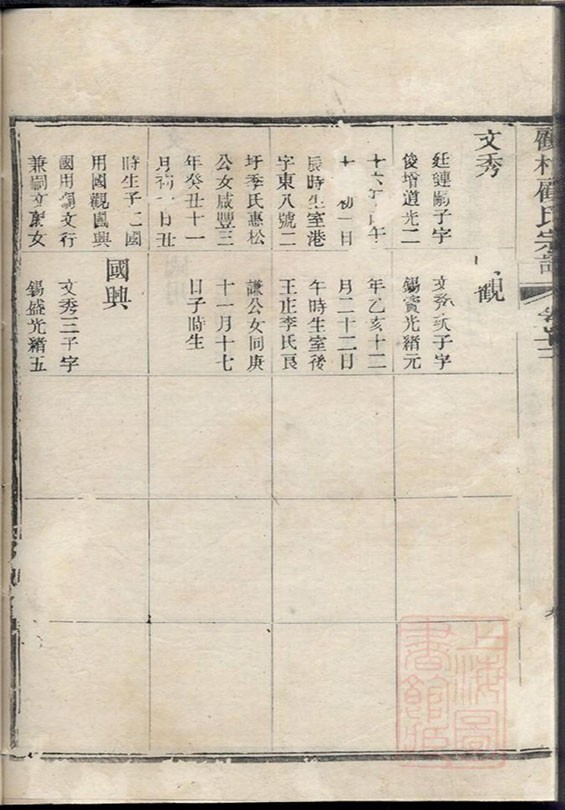 村顧氏宗譜
文秀
廷鏈嗣子字
俊增道光二
十六年午
十初一日
辰時生室港
字東八號二
圩季氏惠松
公女咸豐三
年癸丑十一
月初一日丑
時生子國
用國觀國興
國用嗣文行
兼嗣文女
觀
文秀次子字
錫賓光緒元
年乙亥十二
月二十二日
午時生室後
王庄李氏良
謙公女同庚
十一月十七
日子時生
國興
文秀三子字
錫盛光緒五
上海圖書館藏